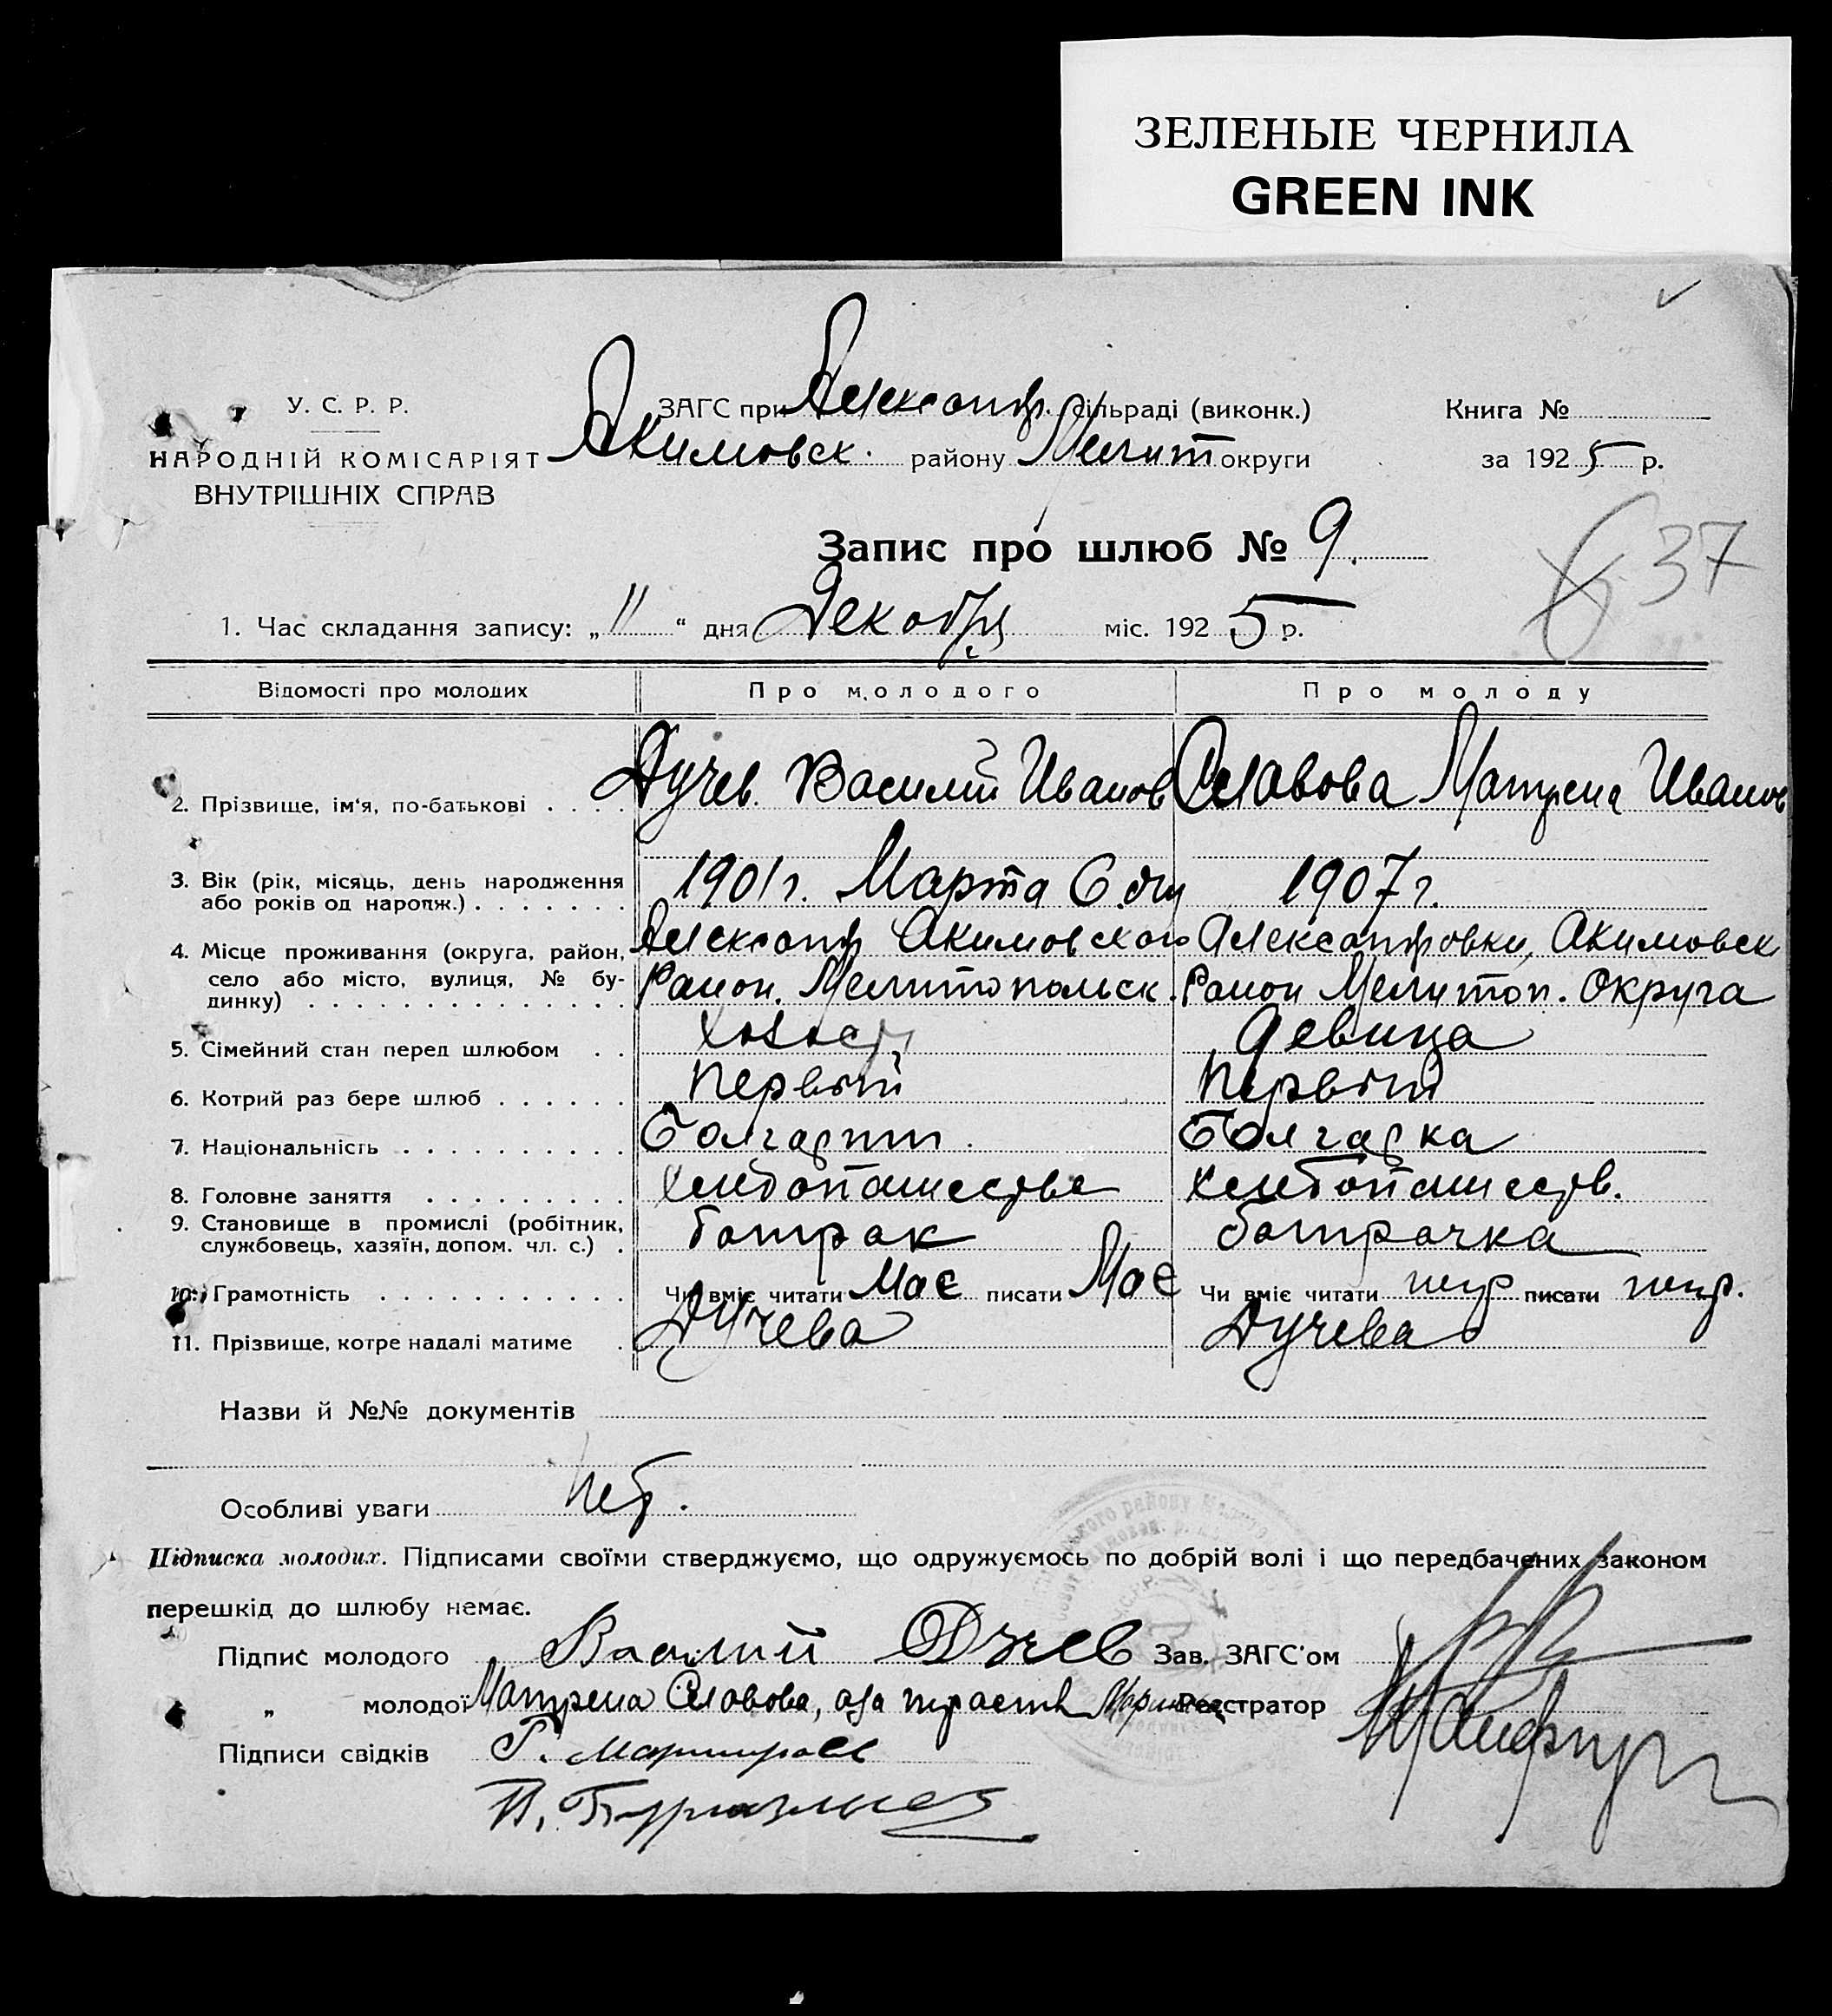 ЗЕЛЕНЫЕ ЧЕРНИЛА
GREEN INK
У. С. Р. Р.
НАРОДНІЙ КОМІСАРІЯТ
ВНУТРІШНІХ СПРАВ
ЗАГС при Александр. сільраді (виконк.)
Акимовск. району Мелит округи
Книга №
за 1925 р.
Запис про шлюб № 9.
37
1. Час складання запису: „11“ дня Декобря міс. 1925 р.
Відомості про молодих Про молодого Про молоду
2. Прізвище, ім‘я, по-батькові . . . . Дучев. Василий Иванов Славова Матрена Иванов
3. Вік (рік, місяць, день народження 1901 г. Марта 6 дня 1907 г.
або років од наропж.) . . . . . . .
4. Місце проживання (округа, район, Александр Акимовского Александровки, Акимовск
село або місто, вулиця, № бу- Раион. Мелитопольск. Раион Мелитоп. Округа
динку) . . . . . . . . . . . . . .
5. Сімейний стан перед шлюбом . . Холост девица
6. Котрий раз бере шлюб . . . . . . Первый Первый
7. Національність . . . . . . . . . . Болгарин. Болгарка
8. Головне заняття . . . . . . . . . Хлебопашества Хлебопашеств.
9. Становище в промислі (робітник, батрак батрачка
службовець, хазяїн, допом. чл. с.) .
10. Грамотність . . . . . . . . . . . Чи вміє читати Має писати Має Чи вміє читати негр писати негр.
11. Прізвище, котре надалі матиме . Дучева Дучева
Назви й №№ документів
Особливі уваги Нет.
Підписка молодих. Підписами своїми стверджуємо, що одружуємось по добрій волі і що передбачених законом
перешкід до шлюбу немає.
Підпис молодого Василий Дучев Зав. ЗАГС'ом
„ молодої Матрена Славова, Реєстратор
Підписи свідків Г.